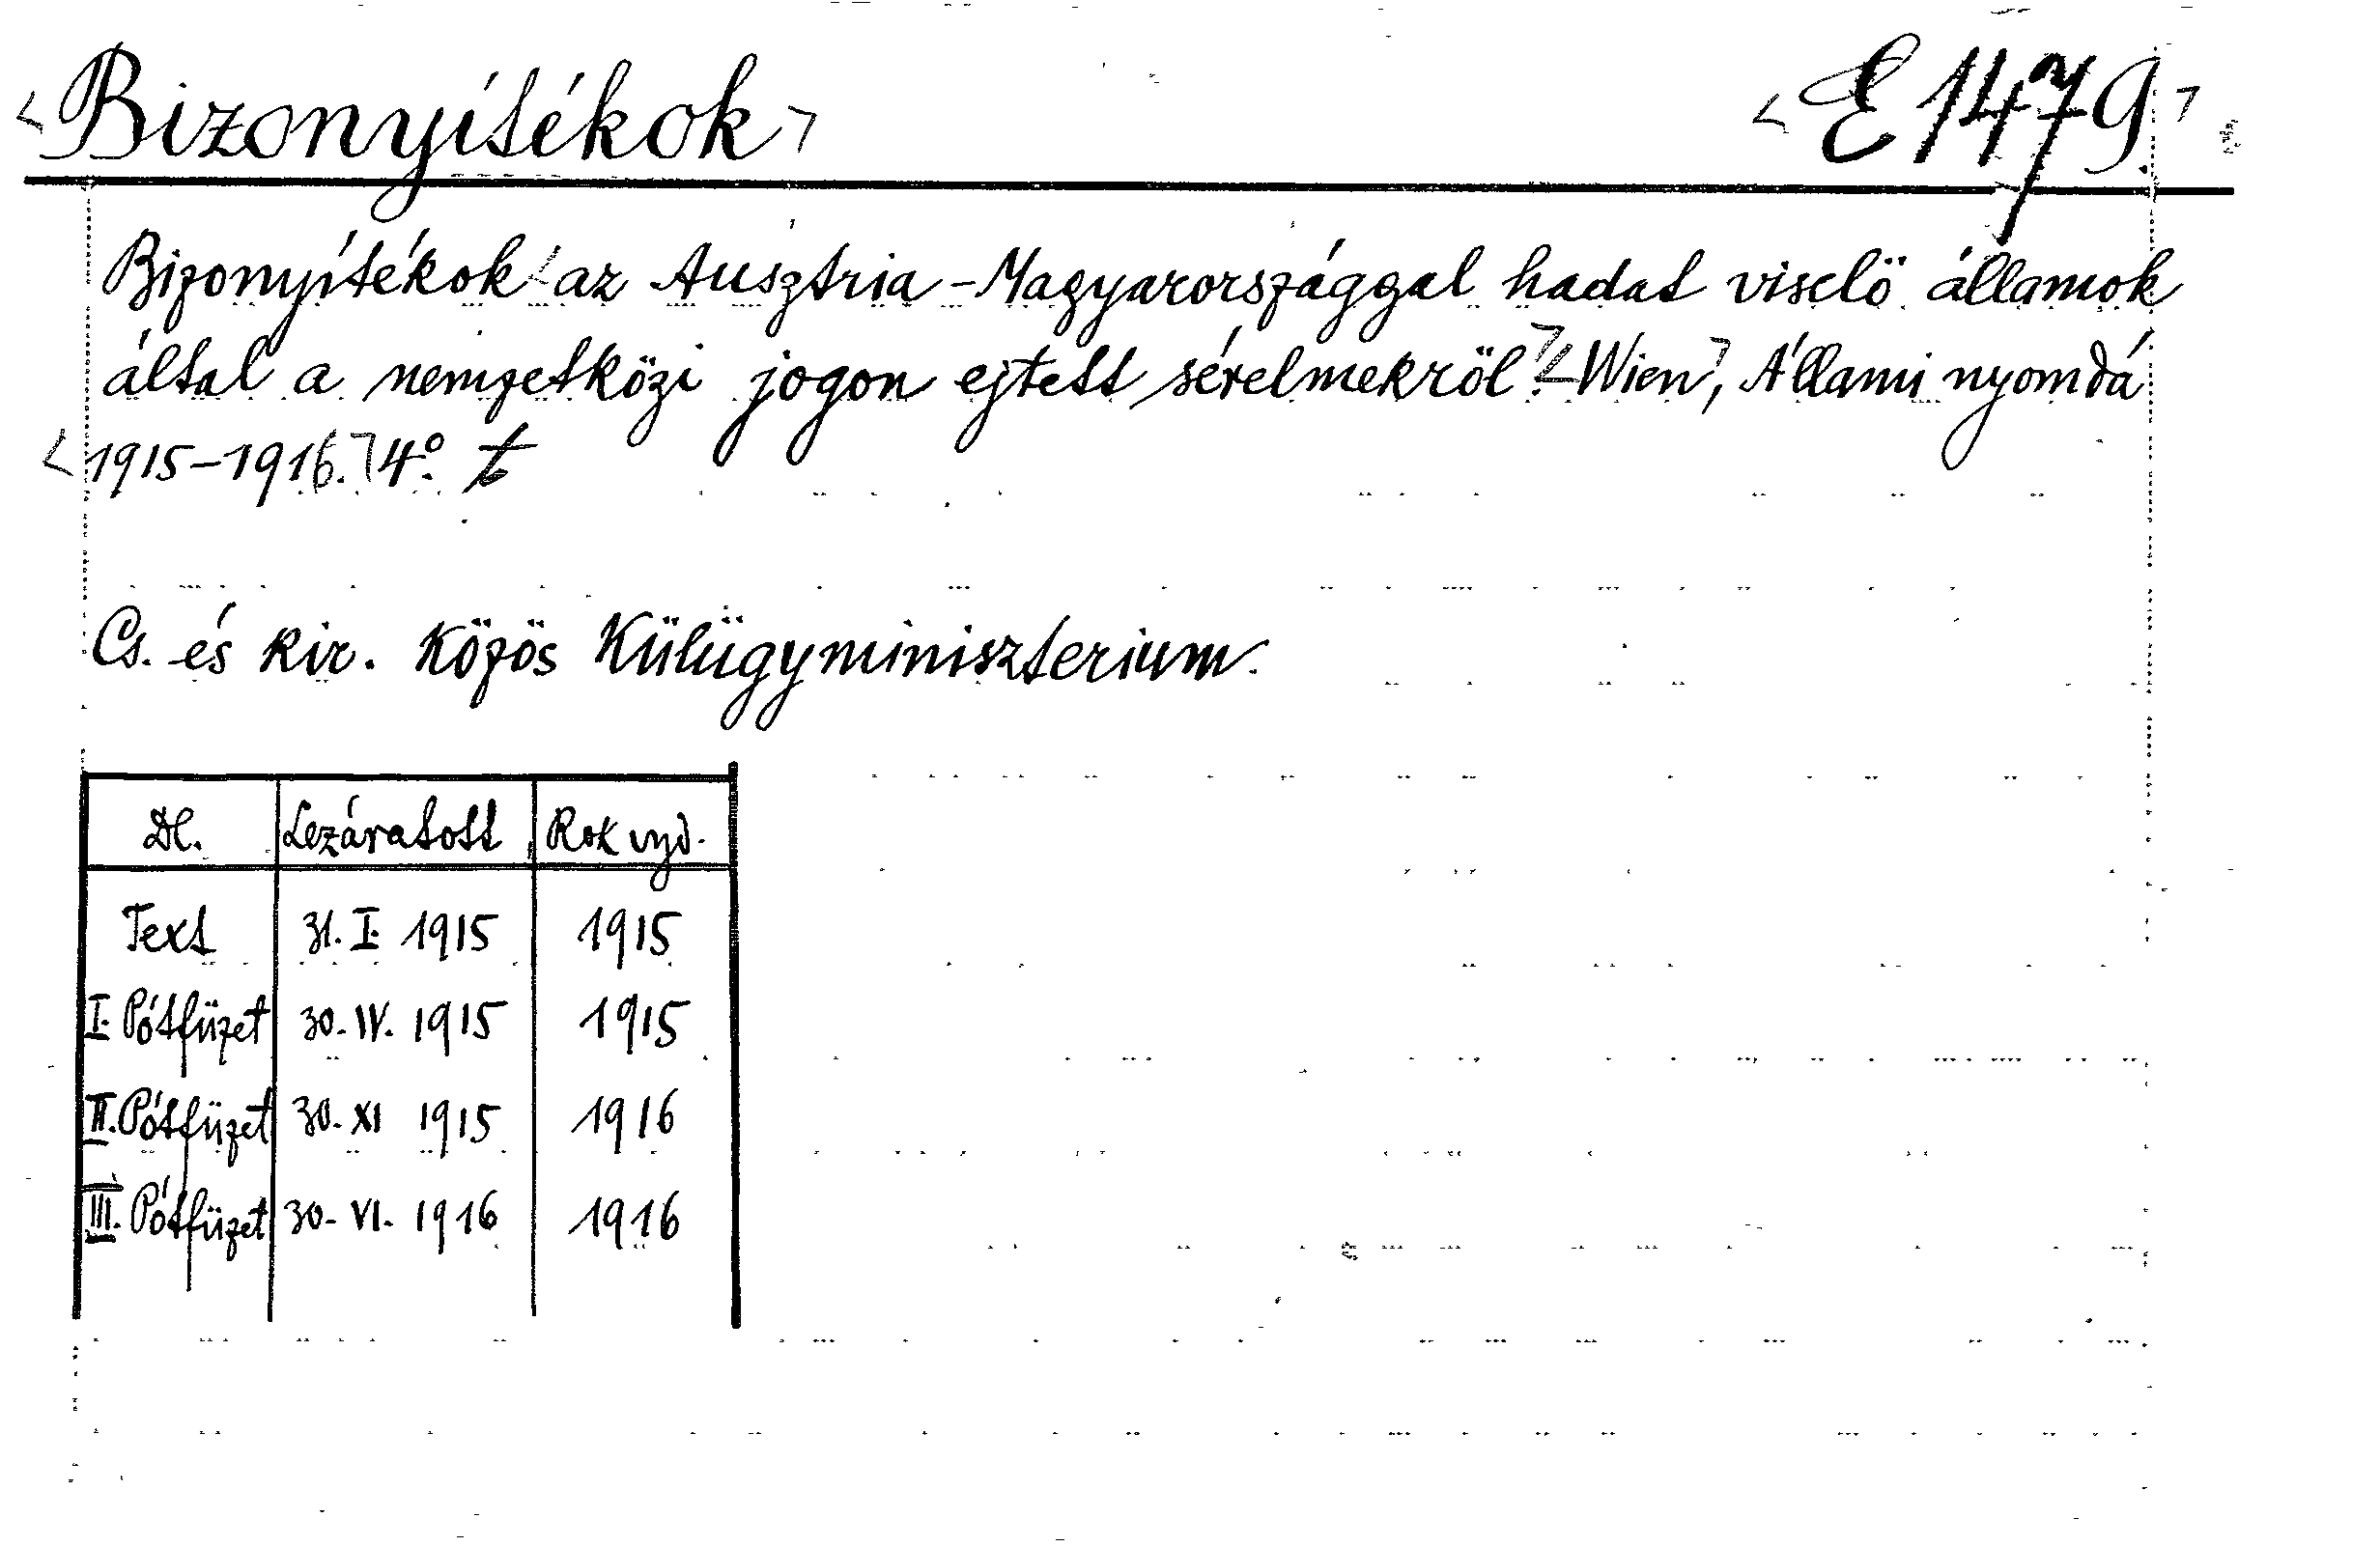 Bizonyítékok E 1479
Bizonyítékok az Ausztria-Magyarországgal hadat viselö államok
által a nemzetközi jogon ejtett sérelmekröl. Wien, Állami nyomda
1915-1916. 4°.
Cs. és kir. Közös Külügyminiszterium.
Dl. Lezáratott Rok vyd.
Text 31. I. 1915 1915
I. Pótfüzet 30. IV. 1915 1915
II. Pótfüzet 30. XI 1915 1916
III. Pótfüzet 30. VI. 1916 1916